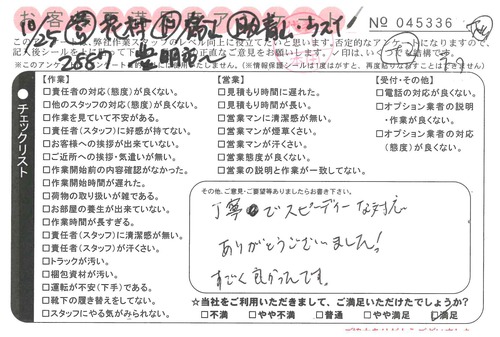 No 045336
記入後シールをはがして
※このアンケート
(※情報保護シールは1度はがすと、再度貼りなおすことはできません)
チェックリスト
【作業】
□責任者の対応(態度)が良くない。
□他のスタッフの対応(態度)が良くない。
□作業を見ていて不安がある。
□責任者(スタッフ)に好感が持てない。
□お客様への挨拶が出来ていない。
□ご近所への挨拶・気遣いが無い。
□作業開始前の内容確認がなかった。
□作業開始時間が遅れた。
□荷物の取り扱いが雑である。
□お部屋の養生が出来ていない。
□作業時間が長すぎる。
□責任者(スタッフ)に清潔感が無い。
□責任者(スタッフ)が汗くさい。
□トラックが汚い。
□梱包資材が汚い。
□運転が不安(下手)である。
□靴下の履き替えをしてない。
□スタッフにやる気がみられない。
【営業】
□見積もり時間に遅れた。
□見積もり時間が長い。
□営業マンに清潔感が無い。
□営業マンが煙草くさい。
□営業マンが汗くさい。
□営業態度が良くない。
□営業の説明と作業が一致してない。
【受付・その他】
□電話の対応が良くない。
□オプション業者の説明
・作業が良くない。
□オプション業者の対応
(態度)が良くない。
その他、ご意見・ご要望等ありましたらお書き下さい。
丁寧でスピーディーな対応
ありがとうございました!
すごく良かったです。
☆当社をご利用いただきまして、ご満足いただけたでしょうか?
□不満 □やや不満 □普通 □やや満足 □満足